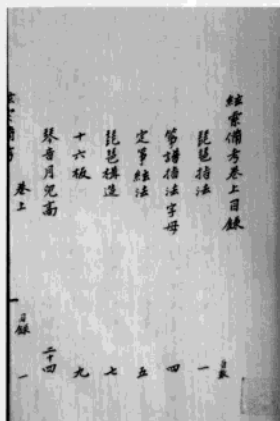 絃索備考卷上目錄
頁數
琵琶指法 一
箏譜指法字母 四
定箏絃法 五
琵琶構造 七
十六板 九
琴音月兒高 二十四
卷上 目錄 一